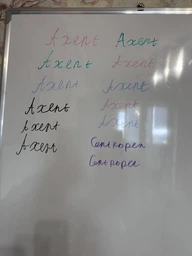 Axent Axent
Axent Axent
Axent Axent
Axent Axent
Axent Axent
Axent Centropen
Centropen